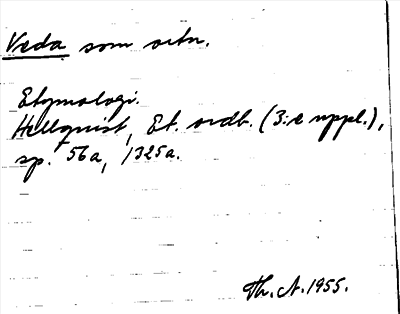 Veda som ortn.
Etymologi.
Hellquist, Et. ordb. (3:e uppl.),
sp. 56a, 1325a.
Th. A. 1955.